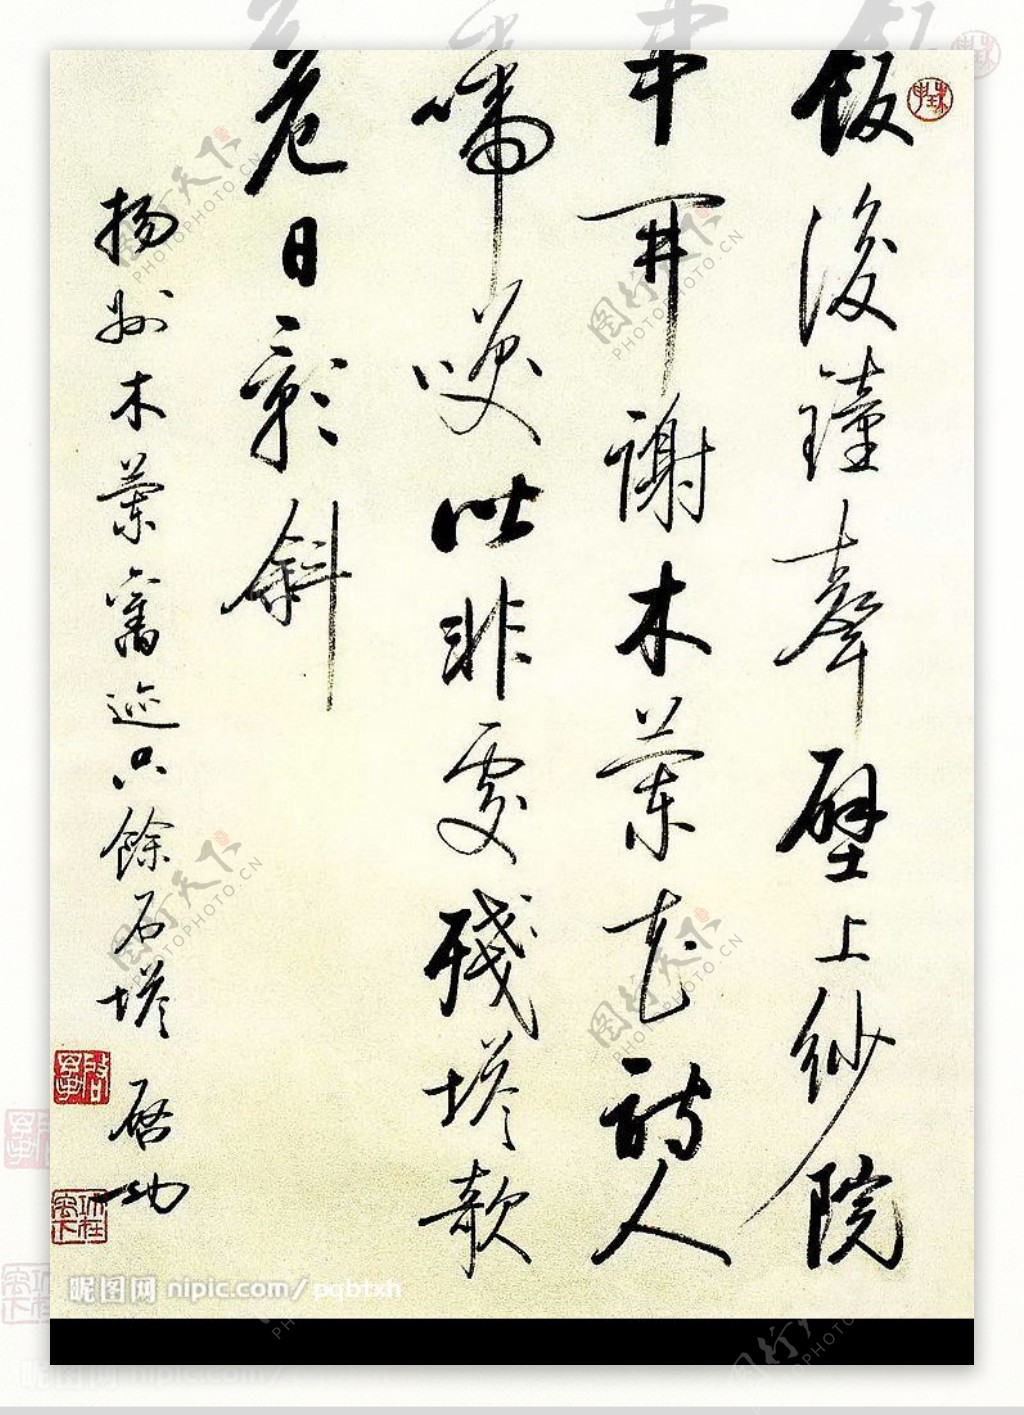 飯後鐘聲壁上紗院
中開謝木蘭花詩人
啼咲皆非處殘塔欹
危日影斜
揚州木蘭舊迹只餘石塔 启功
昵图网 nipic.com/pqbtxh
图行天下 PHOTOPHOTO.CN